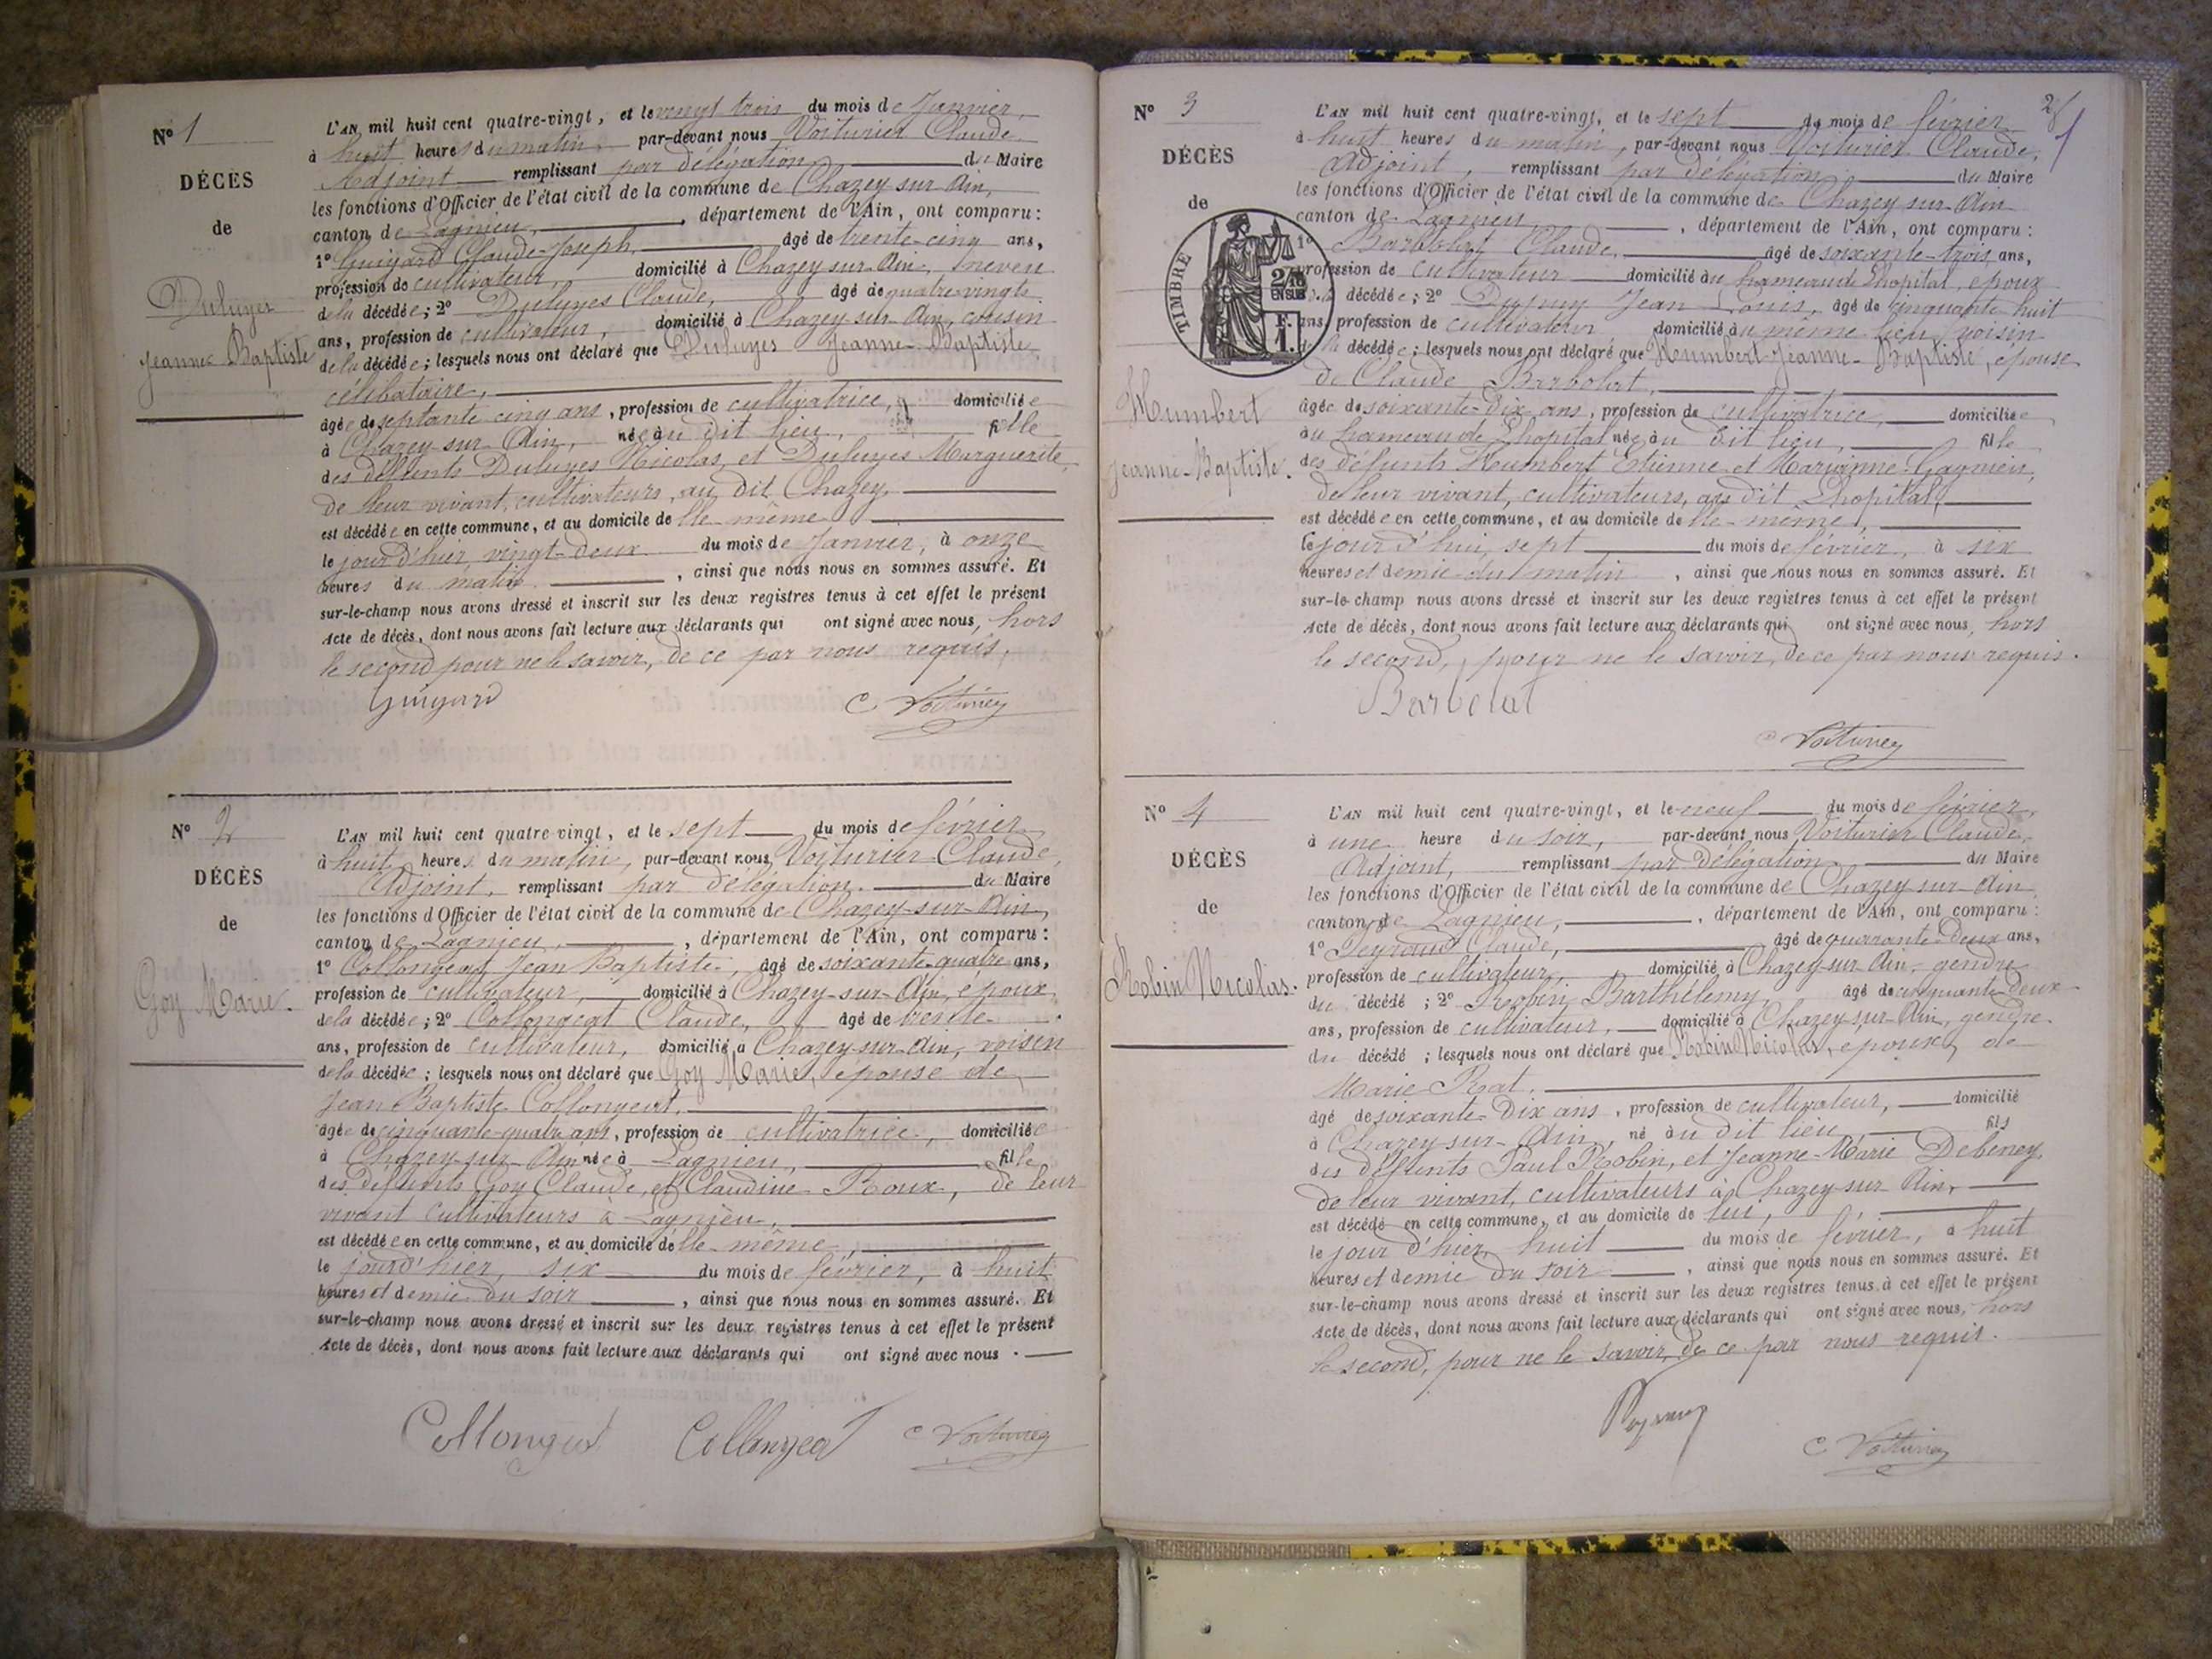 N° 1
DÉCÈS
de
Duluyes
Jeanne Baptiste
L'AN mil huit cent quatre-vingt, et le vingt trois du mois de Janvier,
à huit heures du matin, par-devant nous Voiturier Claude
Adjoint remplissant par délégation du Maire
les fonctions d'Officier de l'état civil de la commune de Chazey sur Ain,
canton de Lagnieu, département de l'Ain, ont comparu:
1° Guigard Claude-Joseph, âgé de trente-cinq ans,
profession de cultivateur, domicilié à Chazey sur Ain, neveu
de la décédée; 2° Duluyes Claude, âgé de quatre-vingts
ans, profession de cultivateur, domicilié à Chazey-sur-Ain, cousin
de la décédée; lesquels nous ont déclaré que Duluyes Jeanne-Baptiste,
célibataire,
âgée de septante cinq ans, profession de cultivatrice, domiciliée
à Chazey-sur-Ain, née au dit lieu, fille
des défunts Duluyes Nicolas, et Duluyes Marguerite,
de leur vivant, cultivateurs, au dit Chazey,
est décédée en cette commune, et au domicile de lle-même
le jour d'hier, vingt-deux du mois de Janvier, à onze
heures du matin, ainsi que nous nous en sommes assuré. Et
sur-le-champ nous avons dressé et inscrit sur les deux registres tenus à cet effet le présent
Acte de décès, dont nous avons fait lecture aux déclarants qui ont signé avec nous, hors
le second pour ne le savoir, de ce par nous requis.
Guigard C Voiturier
N° 2
DÉCÈS
de
Goy Marie.
L'AN mil huit cent quatre-vingt, et le sept du mois de février
à huit heures du matin, par-devant nous Voiturier Claude,
Adjoint, remplissant par délégation. du Maire
les fonctions d'Officier de l'état civil de la commune de Chazey-sur-Ain,
canton de Lagnieu, département de l'Ain, ont comparu:
1° Collongeat Jean Baptiste, âgé de soixante-quatre ans,
profession de cultivateur, domicilié à Chazey-sur-Ain, époux
de la décédée; 2° Collongeat Claude, âgé de trente
ans, profession de cultivateur, domicilié à Chazey-sur-Ain, voisin
de la décédée; lesquels nous ont déclaré que Goy Marie, épouse de
Jean Baptiste Collongeat,
âgée de cinquante-quatre ans, profession de cultivatrice, domiciliée
à Chazey-sur-Ain née à Lagnieu, fille
des défunts Goy Claude, et Claudine Roux, de leur
vivant cultivateurs à Lagnieu,
est décédée en cette commune, et au domicile de lle-même,
le jour d'hier, six du mois de février, à huit
heures et demie du soir, ainsi que nous nous en sommes assuré. Et
sur-le-champ nous avons dressé et inscrit sur les deux registres tenus à cet effet le présent
Acte de décès, dont nous avons fait lecture aux déclarants qui ont signé avec nous.
Collongeat Collongeat C Voiturier
N° 3
DÉCÈS
de
TIMBRE
Humbert
Jeanne-Baptiste.
L'AN mil huit cent quatre-vingt, et le sept du mois de février
à huit heures du matin, par-devant nous Voiturier Claude,
Adjoint, remplissant par délégation du Maire
les fonctions d'Officier de l'état civil de la commune de Chazey sur Ain
canton de Lagnieu, département de l'Ain, ont comparu:
1° Barbolat Claude, âgé de soixante-trois ans,
profession de cultivateur domicilié au hameau de Lhopital, époux
de la décédée; 2° Dupuy Jean Louis, âgé de cinquante huit
ans, profession de cultivateur domicilié au même lieu, voisin
de la décédée; lesquels nous ont déclaré que Humbert Jeanne-Baptiste, épouse
de Claude Barbolat,
âgée de soixante-dix ans, profession de cultivatrice, domiciliée
au hameau de Lhopital née au dit lieu, fille
des défunts Humbert Etienne et Marianne Gagnieu,
de leur vivant, cultivateurs, au dit Lhopital,
est décédée en cette commune, et au domicile de lle-même,
le jour d'hui, sept du mois de février, à six
heures et demie du matin, ainsi que nous nous en sommes assuré. Et
sur-le-champ nous avons dressé et inscrit sur les deux registres tenus à cet effet le présent
Acte de décès, dont nous avons fait lecture aux déclarants qui ont signé avec nous, hors
le second, pour ne le savoir, de ce par nous requis.
Barbolat
C Voiturier
N° 4
DÉCÈS
de
Robin Nicolas.
L'AN mil huit cent quatre-vingt, et le neuf du mois de février,
à une heure du soir, par-devant nous Voiturier Claude,
Adjoint, remplissant par délégation du Maire
les fonctions d'Officier de l'état civil de la commune de Chazey-sur-Ain
canton de Lagnieu, département de l'Ain, ont comparu:
1° Peyraud Claude, âgé de quarante-deux ans,
profession de cultivateur, domicilié à Chazey-sur-Ain, gendre
du décédé; 2° Robin Barthélemy, âgé de cinquante-deux
ans, profession de cultivateur, domicilié à Chazey-sur-Ain, gendre
du décédé; lesquels nous ont déclaré que Robin Nicolas, époux de
Marie Rat,
âgé de soixante-dix ans, profession de cultivateur, domicilié
à Chazey-sur-Ain, né au dit lieu, fils
des défunts Paul Robin, et Jeanne-Marie Debeney,
de leur vivant, cultivateurs à Chazey-sur-Ain,
est décédé en cette commune, et au domicile de lui,
le jour d'hier, huit du mois de février, à huit
heures et demie du soir, ainsi que nous nous en sommes assuré. Et
sur-le-champ nous avons dressé et inscrit sur les deux registres tenus à cet effet le présent
Acte de décès, dont nous avons fait lecture aux déclarants qui ont signé avec nous, hors
le second, pour ne le savoir, de ce par nous requis.
Peyraud
C Voiturier